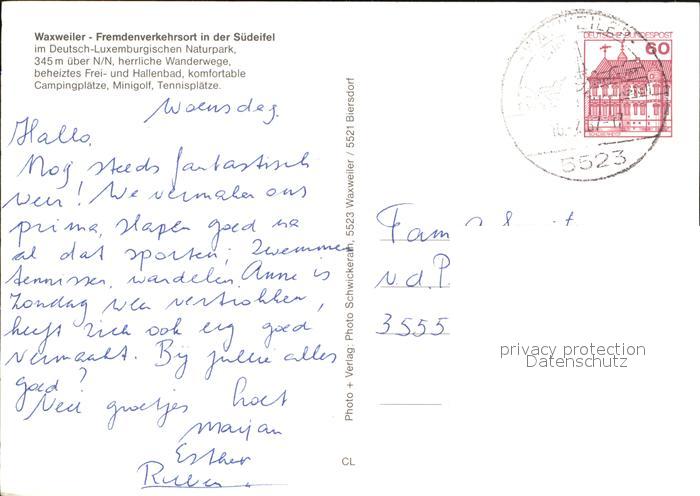 Waxweiler - Fremdenverkehrsort in der Südeifel
im Deutsch-Luxemburgischen Naturpark,
345 m über N/N, herrliche Wanderwege,
beheiztes Frei- und Hallenbad, komfortable
Campingplätze, Minigolf, Tennisplätze.
Woensdag.
Hallo,
Nog steeds fantastisch
weer! We vermaken ons
prima, slapen goed na
al dat sporten; zwemmen
tennissen, wandelen. Anne is
Zondag weer vertrokken,
heeft zich ook erg goed
vermaakt. Bij jullie alles
goed?
Veel groetjes
Marjan
Esther
Ruben
Photo + Verlag: Photo Schwickerath, 5523 Waxweiler / 5521 Biersdorf
CL
WAXWEILER
5523
DEUTSCHE BUNDESPOST
60
Fam
v.d. P.
3555
privacy protection
Datenschutz